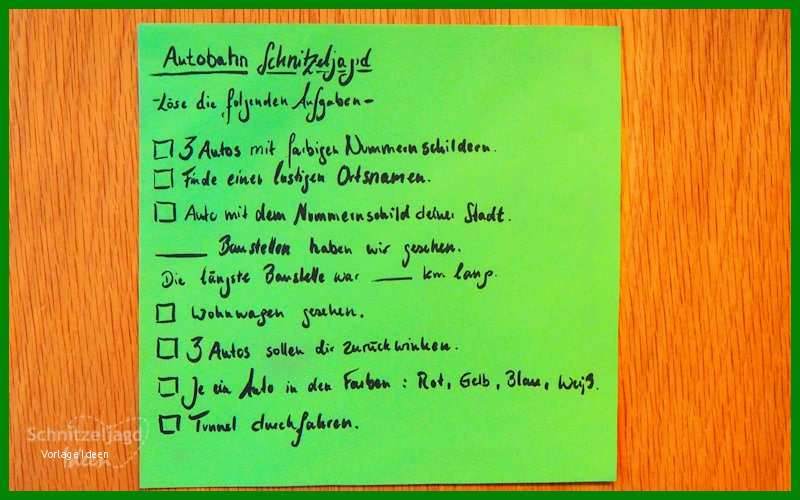 Autobahn Schnitzeljagd
-Löse die folgenden Aufgaben-
3 Autos mit farbigen Nummernschildern.
Finde einen lustigen Ortsnamen.
Auto mit dem Nummernschild deiner Stadt.
____ Baustellen haben wir gesehen.
Die längste Baustelle war ____ km lang.
Wohnwagen gesehen.
3 Autos sollen dir zurückwinken.
Je ein Auto in den Farben : Rot, Gelb, Blau, Weiß.
Tunnel durchfahren.
Schnitzeljagd
Ideen
Vorlage Ideen